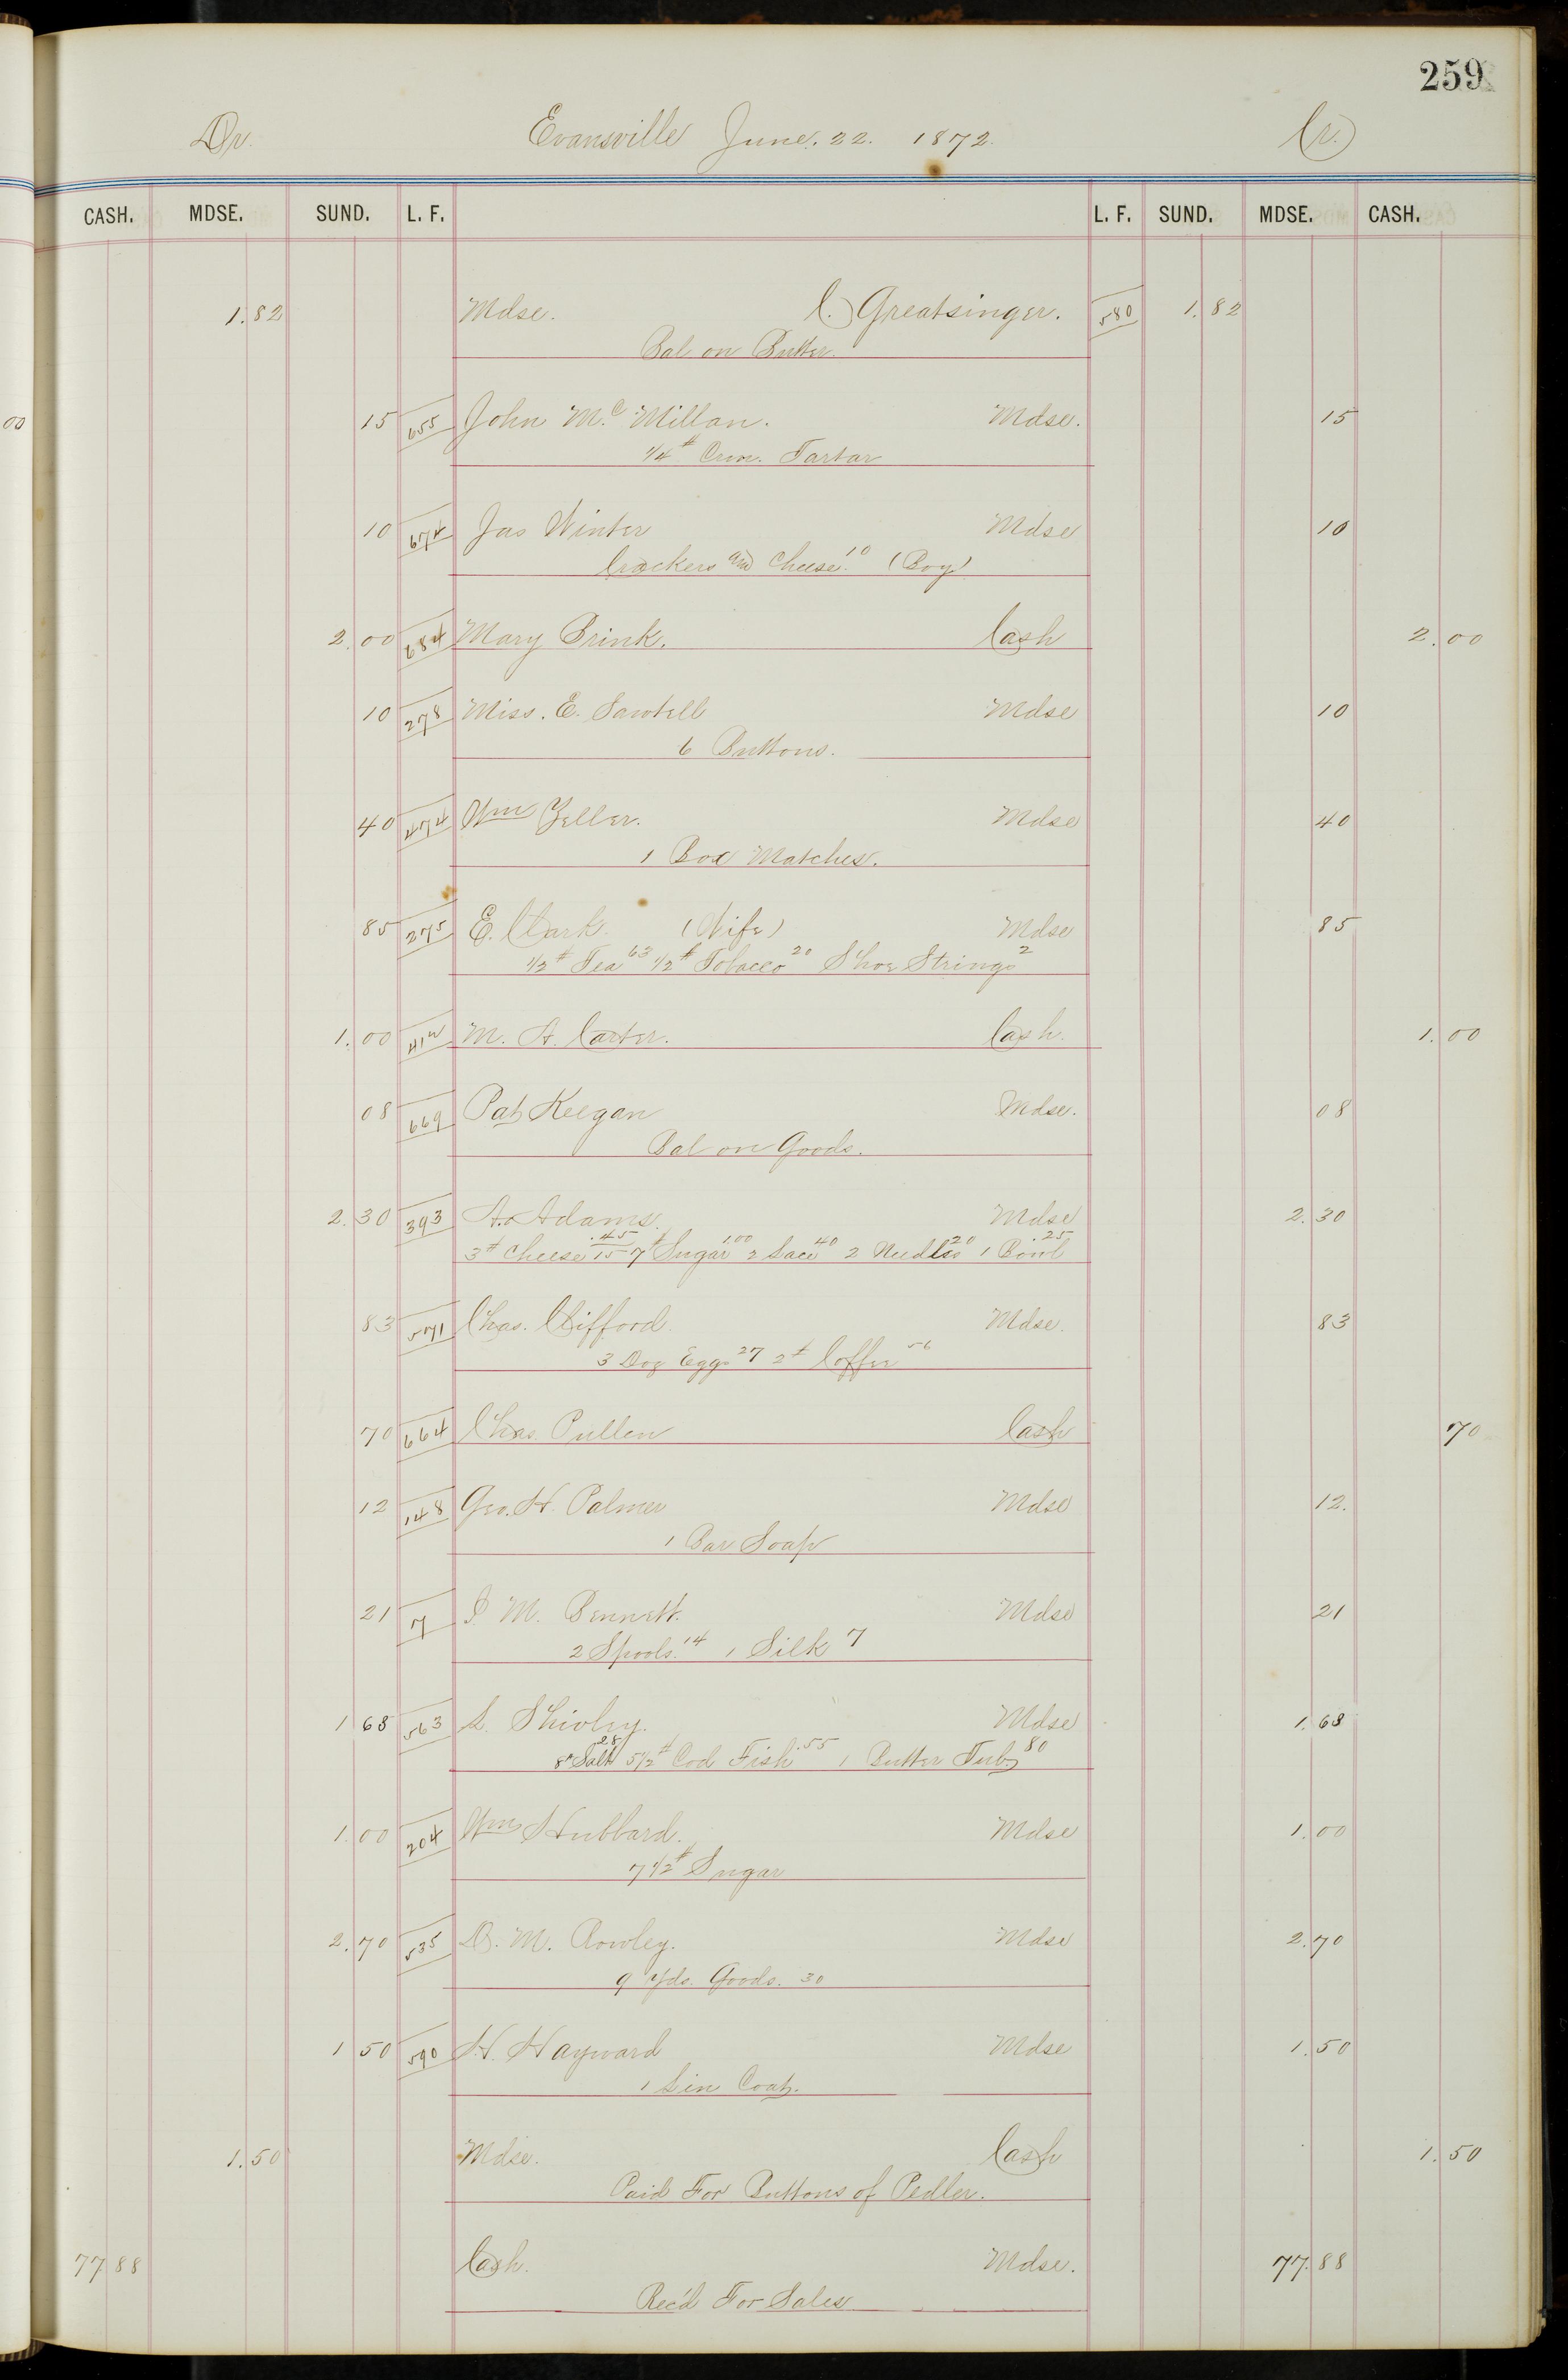 259
Dr. Evansville June. 22. 1872. Cr.
CASH. MDSE. SUND. L. F. L. F. SUND. MDSE. CASH.
1.82 Mdse. C. Greatsinger. 580 1.82
Bal on Butter.
00
15 655 John Mc. Millan. Mdse. 15
1/4 # Crm. Tartar
10 674 Jas Winter Mdse 10
Crackers and Cheese 10 (Boy)
2.00 684 Mary Brink. Cash 2.00
10 278 Miss. E. Sawtell Mdse 10
6 Buttons.
40 474 Wm Zeller. Mdse 40
1 Box Matches.
85 275 E. Clark. (Wife) Mdse 85
1/2 # Tea 63 1/2 # Tobacco 20 Shoe Strings 2
1.00 412 M. A. Carter. Cash. 1.00
08 669 Pat Keegan Mdse. 08
Bal on Goods.
2.30 393 A. Adams. Mdse 2.30
3 # Cheese .45 15 7 # Sugar 1.00 2 Lace 40 2 Needles 20 1 Bowl .25
83 571 Chas. Clifford. Mdse. 83
3 Doz Eggs 27 2 # Coffee 56
70 664 Chas. Pullen Cash 70
12 148 Geo. H. Palmer Mdse 12.
1 Bar Soap
21 7 I M. Bennett. Mdse 21
2 Spools. 14 1 Silk 7
1 63 563 L. Shivley. Mdse 1.63
8 # Salt 28 5 1/2 # Cod Fish .55 1 Butter Tub 80
1.00 204 Wm Hubbard. Mdse 1.00
7 1/2 # Sugar
2.70 535 D. M. Rowley. Mdse 2.70
9 Yds. Goods. 30
1 50 590 H. Hayward Mdse 1.50
1 Lin Coat.
1.50 Mdse. Cash 1.50
Paid For Buttons of Pedler.
77.88 Cash. Mdse. 77.88
Rec'd For Sales